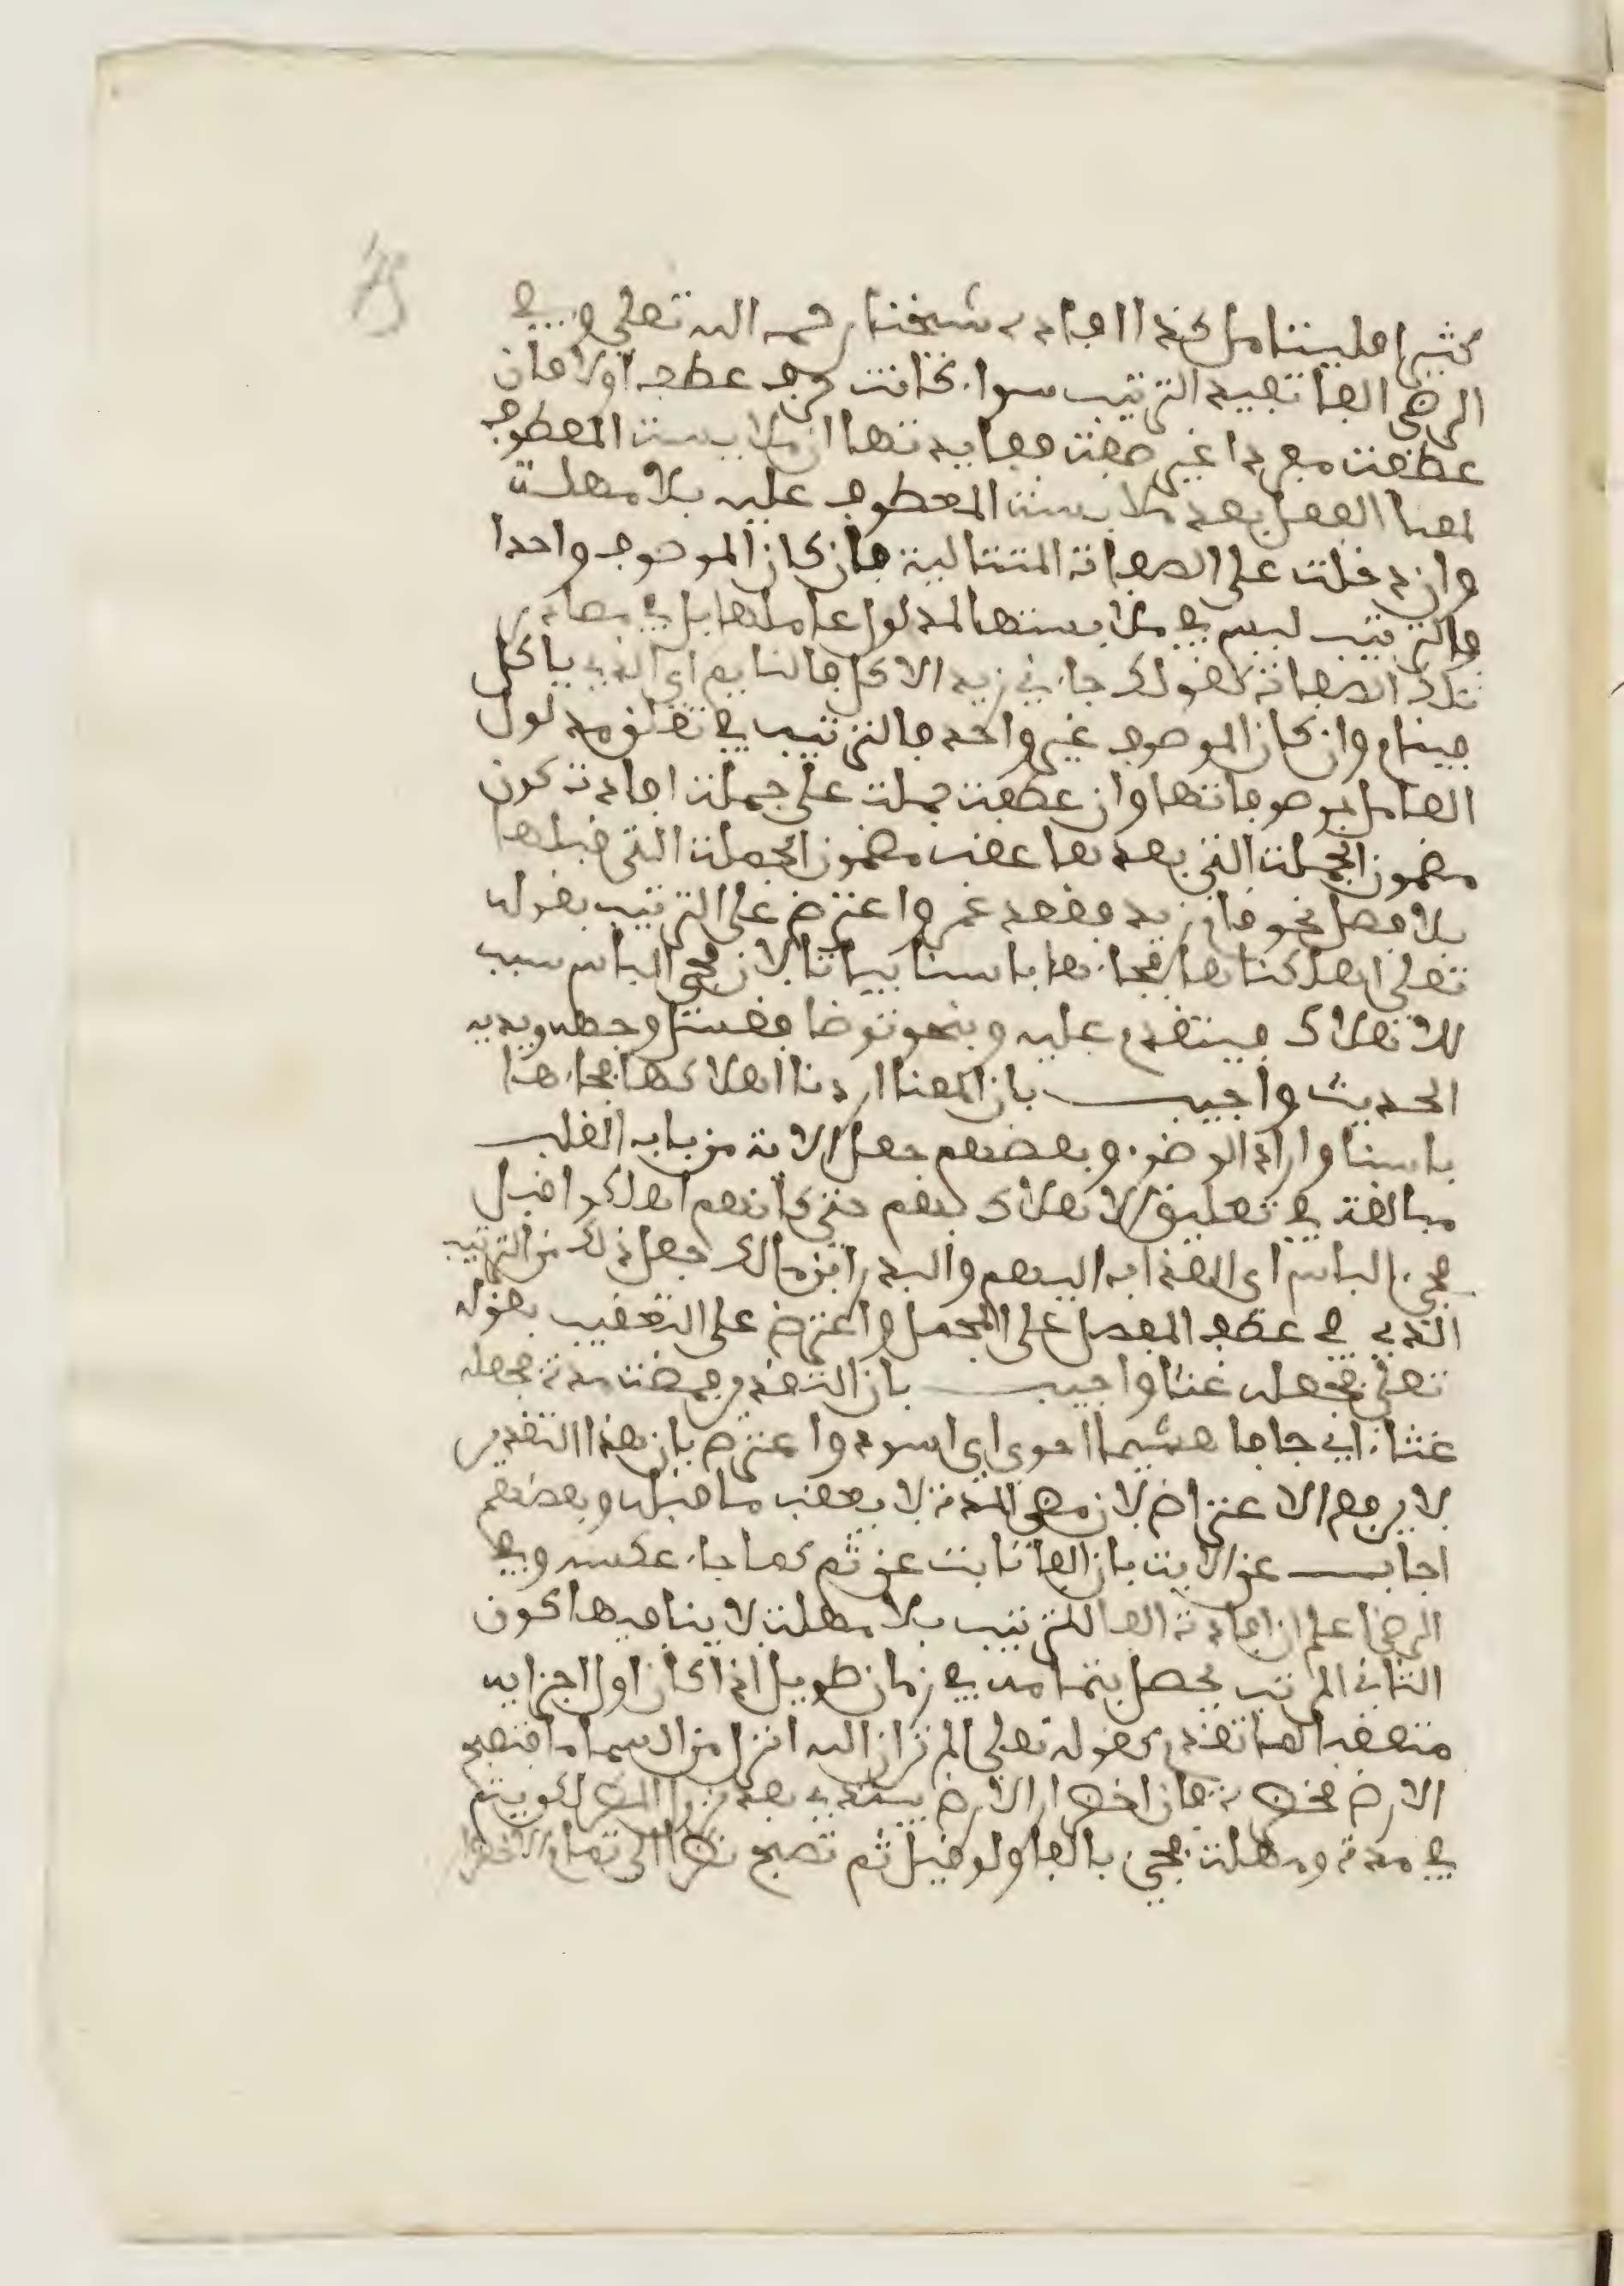 كثيرا فليتامل هكذا افاده شيخنا رحمه الله تعلى وفي
الرضى الفا تفيد الترتيب سوا كانت حرف عطف اولا فان
عطفت مفردا غير صفة ففايدتها ان ملابسة المعطوف
لمعنا الفعل بعد ملابسة المعطوف عليه بلا مهلة
وان دخلت على الصفات المتتالية فان كان الموصوف واحدا
فالترتيب ليس في ملابستها لمدلول عاملها بل في مصادر
تلك الصفات كقولك جاءني زيد الاكل فالنايم اي الذي ياكل
فينام وان كان الموصوف غير واحد فالترتيب في تعلق مدلول
العامل بموصوفاتها وان عطفت جملة على جملة افادت كون
مضمون الجملة التي بعدها عقب مضمون الجملة التي قبلها
بلا فصل نحو قام زيد فقعد عمر واعترض على الترتيب بقوله
تعلى اهلكناها فجاءها باسنا بياتا لان مجيء الباس سبب
للاهلاك فيتقدم عليه وبنحو توضا فغسل وجهه ويديه
الحديث واجيب بان المعنا اردنا اهلاكها فجاءها
باسنا واراد الوضوء وبعضهم جعل الاية من باب القلب
مبالغة في تعليق الاهلاك بهم حتى كانهم اهلكوا قبل
مجيء الباس اي العذاب اليهم والبدر ابن مالك جعل ذلك من الترتيب
الذي في عطف المفصل على المجمل واعترض على التعقيب بقوله
تعلى فجعله غثاء واجيب بان التقدير فمضت مدة فجعله
غثاء اي جافا هشيما احوى اي اسود واعترض بان هذا التقدير
لا يرفع الاعتراض لان مضي المدة لا يعقب ما قبله وبعضهم
اجاب عن الاية بان الفا نابت عن ثم كما جاء عكسه وفي
الرضي اعلم ان افادة الفا للترتيب بلا مهلة لا ينافيها كون
الثاني المرتب يحصل بتمامه في زمان طويل اذا كان اول اجزايه
متعقبا لما تقدم كقوله تعلى الم تر ان الله انزل من السماء ما فتصبح
الارض مخضرة فان اخضرار الارض يبتدي بعد نزول المطر لكن يتم
في مدة ومهلة فجيء بالفا ولو قيل ثم تصبح نظرا الى تمام الاخضرار